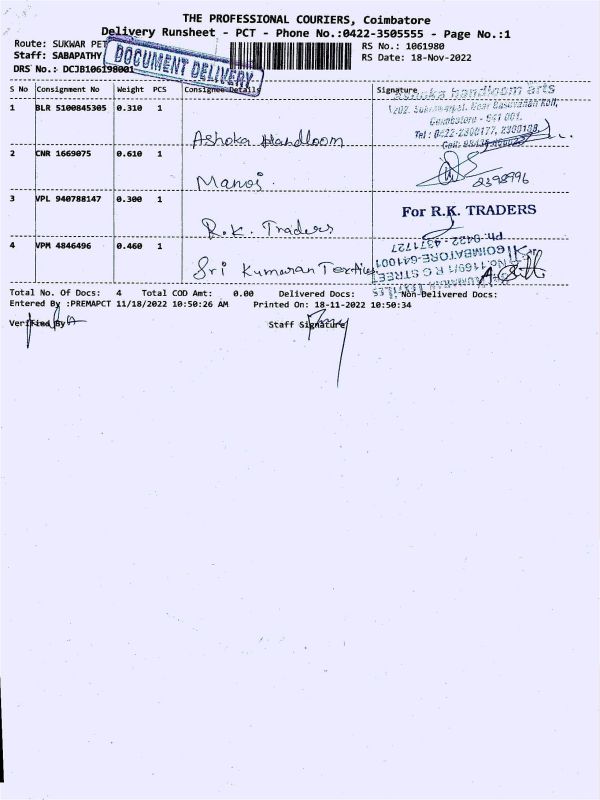 THE PROFESSIONAL COURIERS, Coimbatore
Delivery Runsheet - PCT - Phone No.:0422-3505555 - Page No.:1
Route: SUKWAR PET
RS No.: 1061980
Staff: SABAPATHY
RS Date: 18-Nov-2022
DRS No.: DCJB106198001
DOCUMENT DELIVERY
S No Consignment No Weight PCS Consignee Details Signature
1 BLR 5100845305 0.310 1 Ashoka Handloom
ashoka handloom arts
Coimbatore - 641 001.
Tel : 0422-2300177,
2 CNR 1669075 0.610 1 Manoj.
2398996
3 VPL 940788147 0.300 1 R.K. Traders
For R.K. TRADERS
4 VPM 4846496 0.460 1 Sri Kumaran Textiles
Ph: 0422-4371727
COIMBATORE-641001
R G STREET
Total No. Of Docs: 4 Total COD Amt: 0.00 Delivered Docs: Non-Delivered Docs:
Entered By :PREMAPCT 11/18/2022 10:50:26 AM Printed On: 18-11-2022 10:50:34
Verified By
Staff Signature